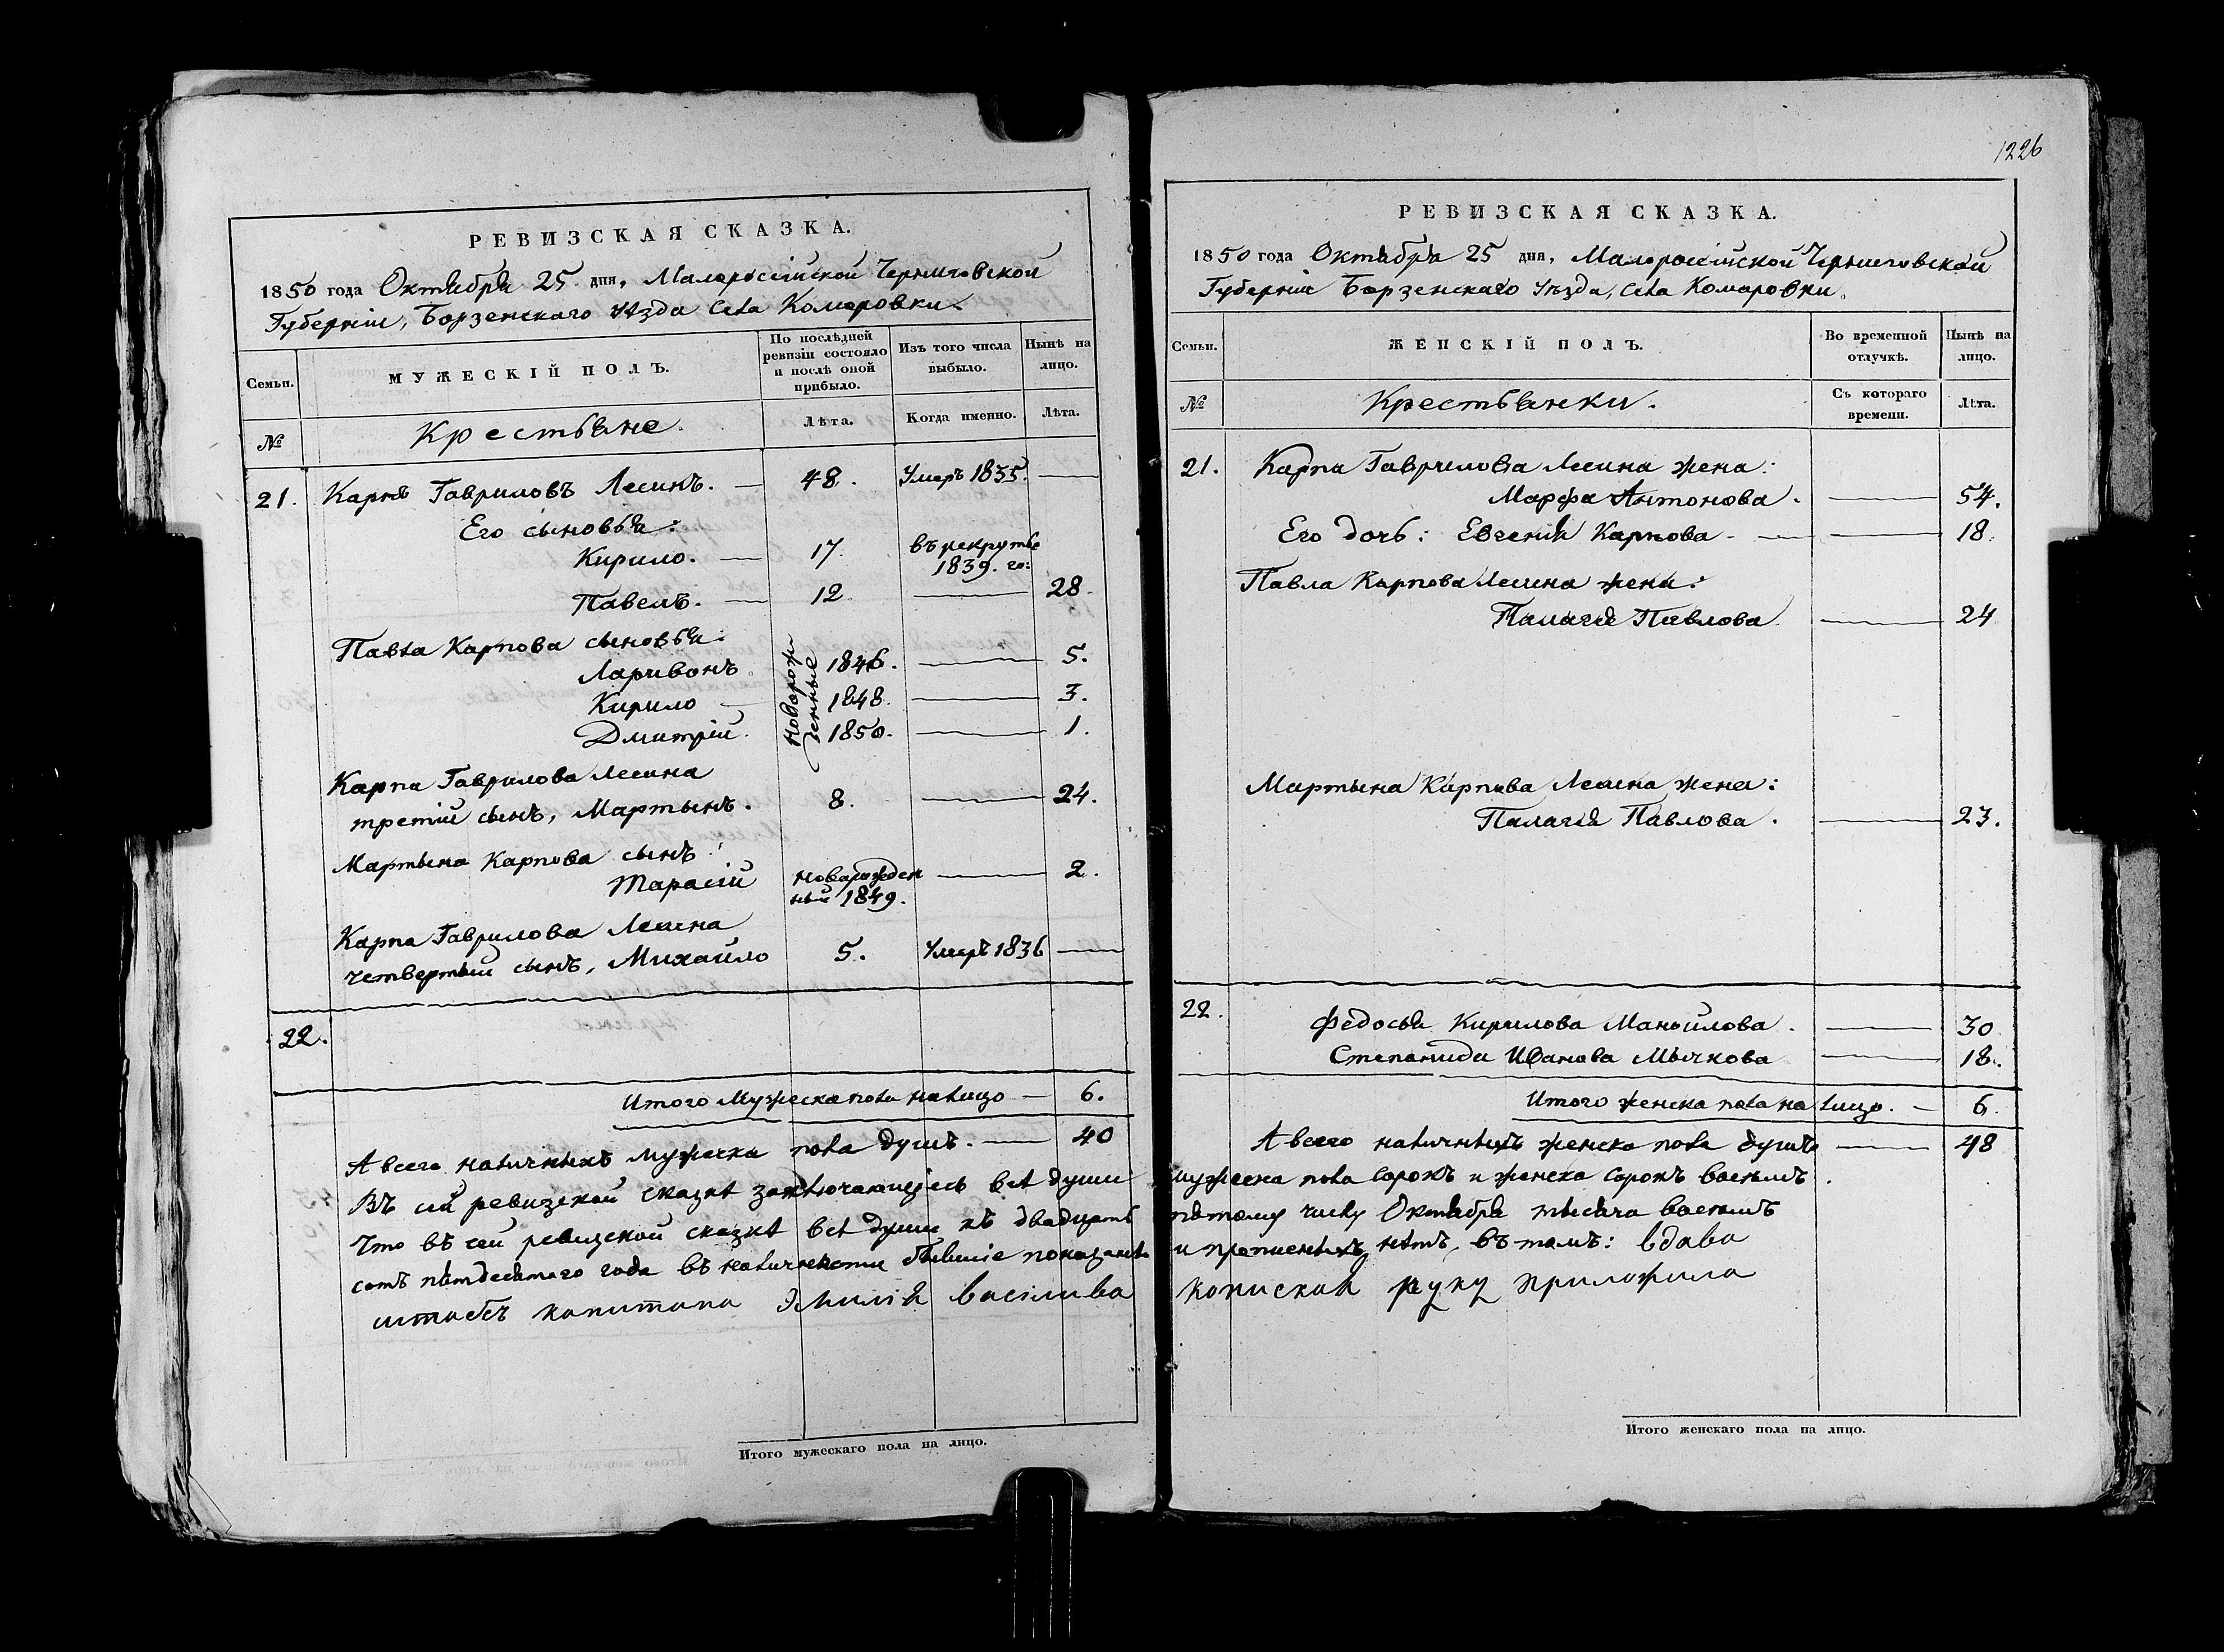 РЕВИЗСКАЯ СКАЗКА.
1850 года Октября 25 дня, Малороссійской Черниговской
Губерніи, Борзенскаго уѣзда Села Комаровки.
Семьи.
МУЖЕСКІЙ ПОЛЪ.
По послѣдней ревизіи состояло и послѣ оной прибыло.
Изъ того числа выбыло.
Нынѣ на лицо.
№
Крестьяне.
Лѣта.
Когда именно.
Лѣта.
21. Карпъ Гавриловъ Лесинъ. — 48. Умеръ 1835. —
Его сыновья:
Кирило. — 17. въ рекруты 1839. го:
Павелъ. — 12. — 28.
Павла Карпова сыновья:
Новорожденные
Ларивонъ 1846. — 5.
Кирило — 1848. — 3.
Дмитрій. 1850. — 1.
Карпа Гаврилова Лесина
третій сынъ, Мартынъ. 8. — 24.
Мартына Карпова сынъ:
Тарасій новорожденный 1849. — 2.
Карпа Гаврилова Лесина
четвертый сынъ, Михайло 5. Умеръ 1836 —
22.
Итого Мужеска пола налицо — 6.
А всего наличныхъ мужеска пола душъ. — 40
Въ сей ревизской сказкѣ заключающіесь всѣ души
Что въ сей ревизской сказкѣ всѣ души къ двадцать
сотъ пятдесятого года въ наличности бывшіе показаны
штабсъ капитана Эмилія васілива
Итого мужескаго пола на лицо.
1226
РЕВИЗСКАЯ СКАЗКА.
1850 года Октября 25 дня, Малоросійской Черниговской
Губерніи Борзенскаго уѣзда, Села Комаровки.
Семьи.
ЖЕНСКІЙ ПОЛЪ.
Во временной отлучкѣ.
Нынѣ на лицо.
№
Крестьянки.
Съ котораго времени.
Лѣта.
21. Карпа Гаврилова Лесина жена:
Марфа Антонова. — 54.
Его дочь: Евгенія Карпова — — 18.
Павла Карпова Лесина жена:
Палагія Павлова — 24
Мартына Карпова Лесина жена:
Палагія Павлова. — 23.
22. Федосья Кирилова Манойлова. — 30
Степанида Иванова Мычкова — 18.
Итого женска пола на лицо. — 6.
А всего наличныхъ женска пола душъ — 48
мужеска пола сорокъ и женска сорокъ восемь.
пятому числу Октября тысяча восемь
и прописныхъ нѣтъ, въ томъ: вдова
руку приложила
Итого женскаго пола на лицо.